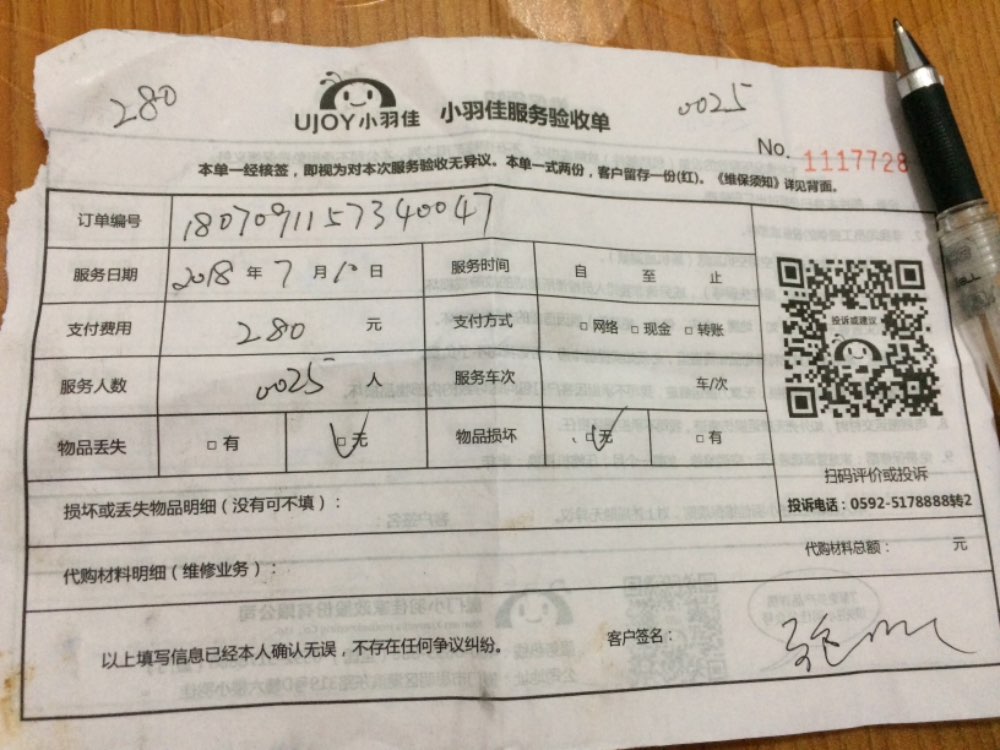 280
UJOY小羽佳 小羽佳服务验收单
0025
No. 1117728
本单一经核签，即视为对本次服务验收无异议。本单一式两份，客户留存一份(红)。《维保须知》详见背面。
订单编号 1807091157340047
服务日期 2018 年 7 月 10 日 服务时间 自 至 止
支付费用 280 元 支付方式 □网络 □现金 □转账
服务人数 0025 人 服务车次 车/次
物品丢失 □有 □无 物品损坏 □无 □有
投诉或建议
扫码评价或投诉
投诉电话：0592-5178888转2
损坏或丢失物品明细（没有可不填）：
代购材料明细（维修业务）： 代购材料总额： 元
以上填写信息已经本人确认无误，不存在任何争议纠纷。 客户签名：